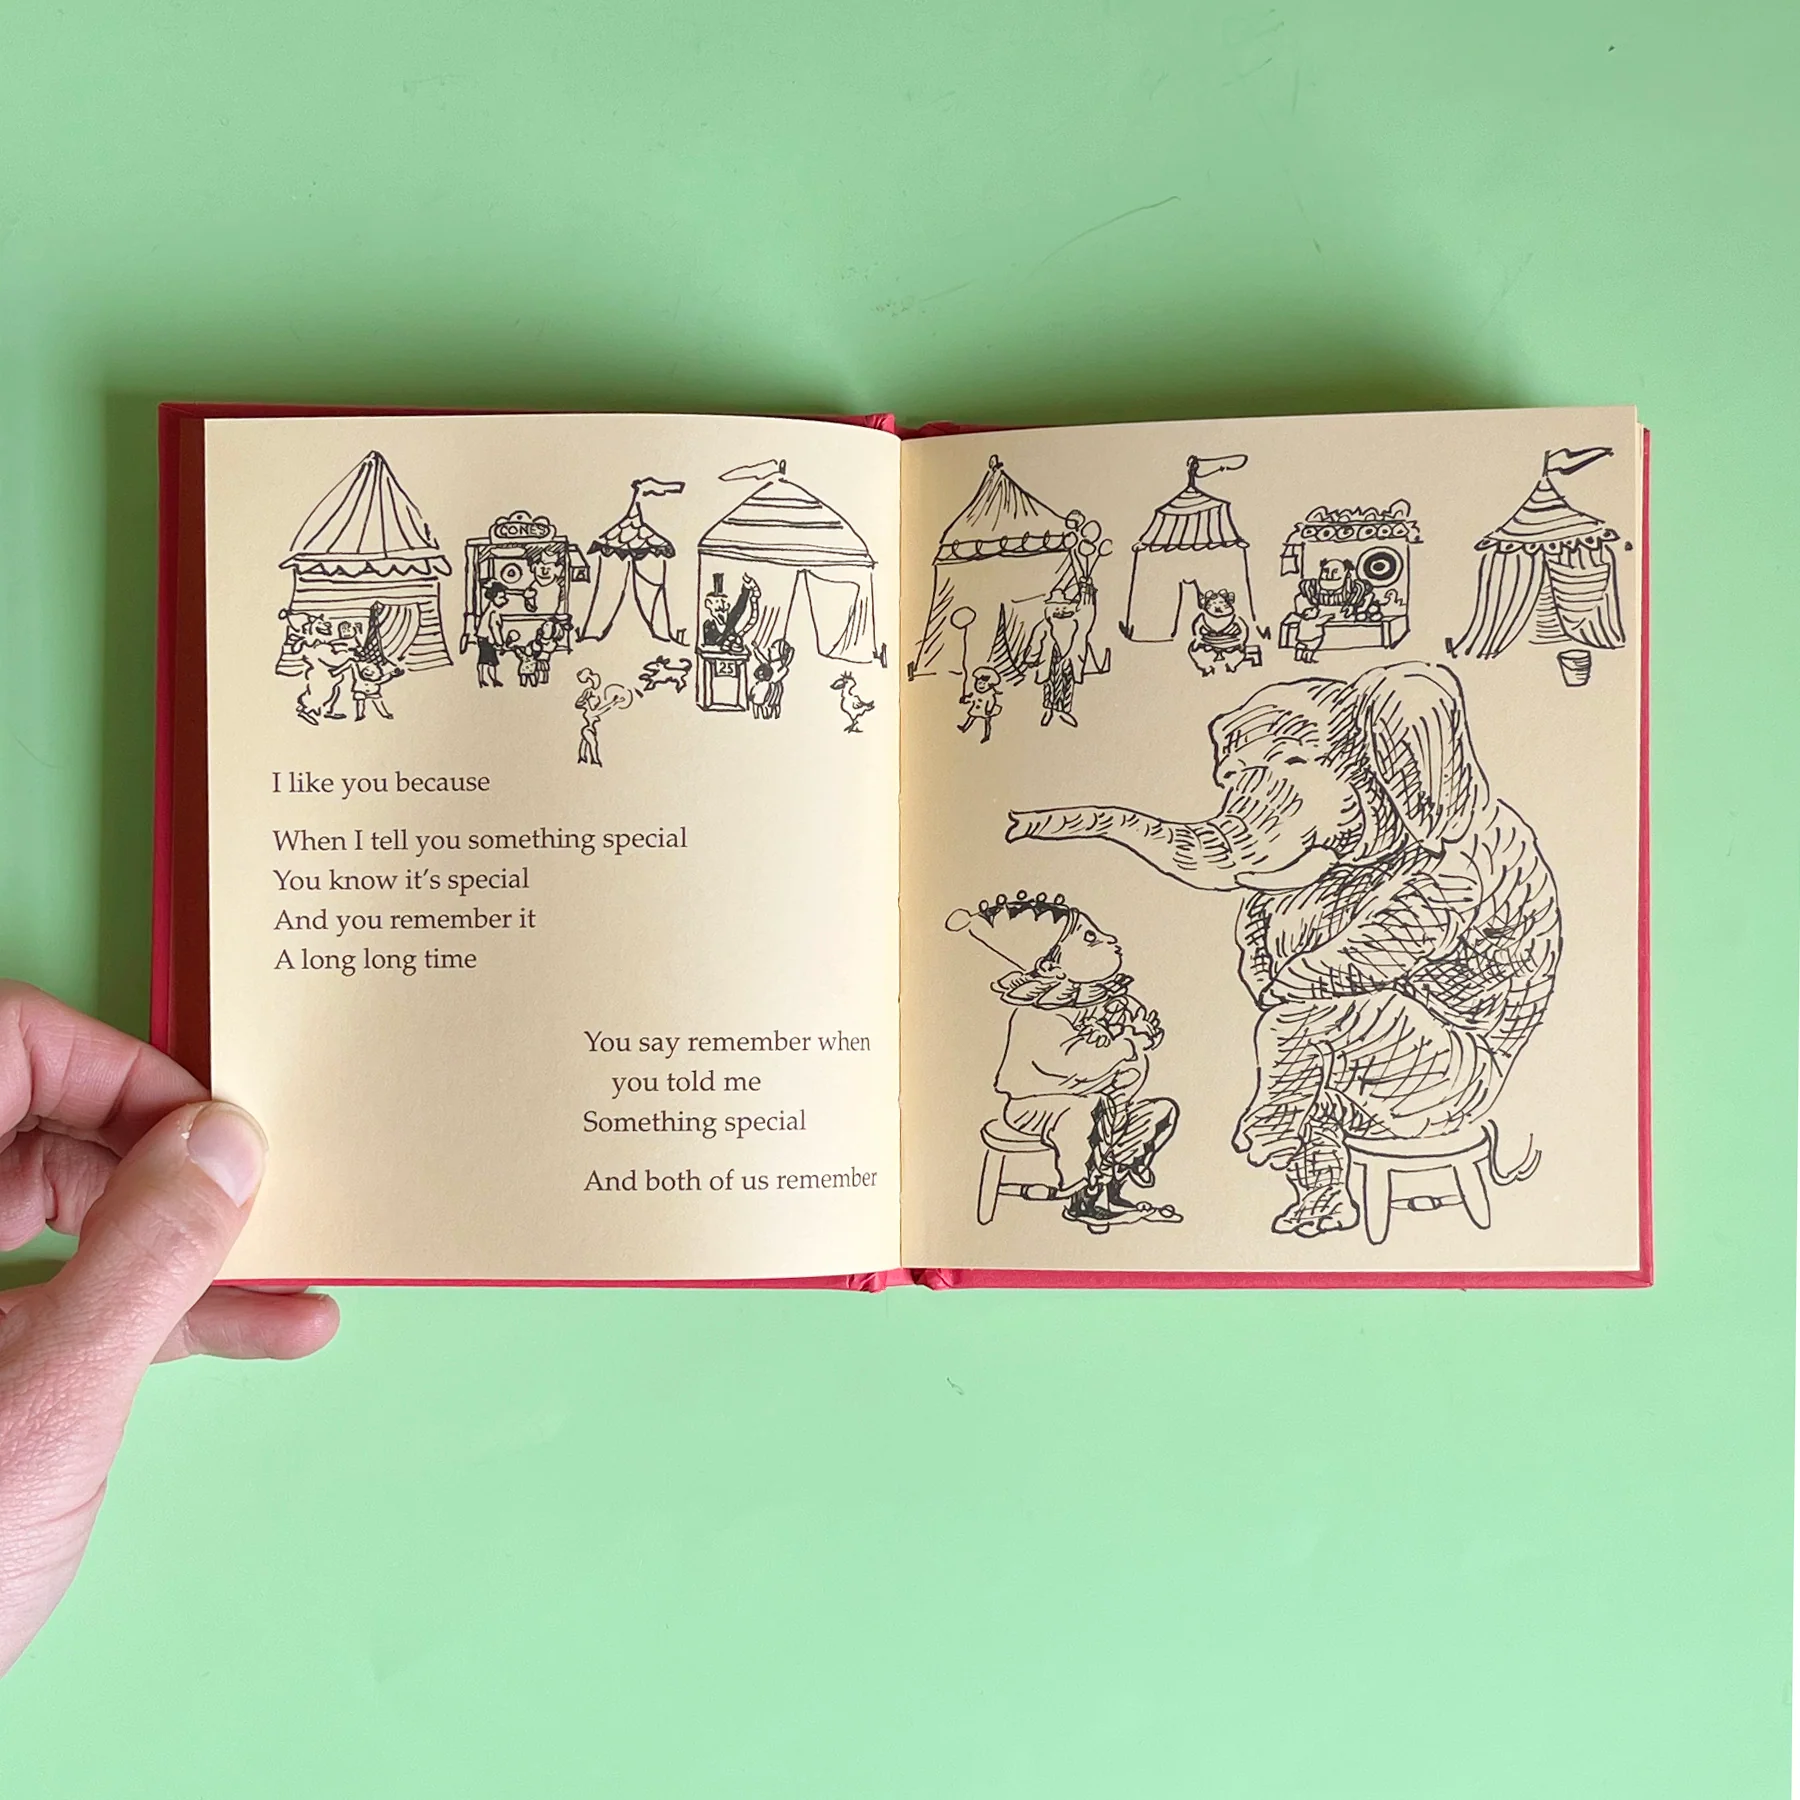 CONES
25
I like you because
When I tell you something special
You know it's special
And you remember it
A long long time
You say remember when
you told me
Something special
And both of us remember